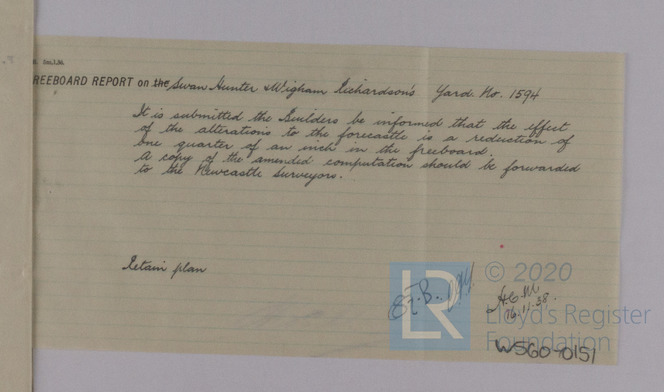 REEBOARD REPORT on the Swan Hunter & Wigham Richardson's Yard No. 1594
It is submitted the Builders be informed that the effect
of the alterations to the forecastle is a reduction of
one quarter of an inch in the freeboard.
A copy of the amended computation should be forwarded
to the Newcastle Surveyors.
Retain plan
LR
© 2020
Lloyd's Register
Foundation
16.11.38.
W560-0151